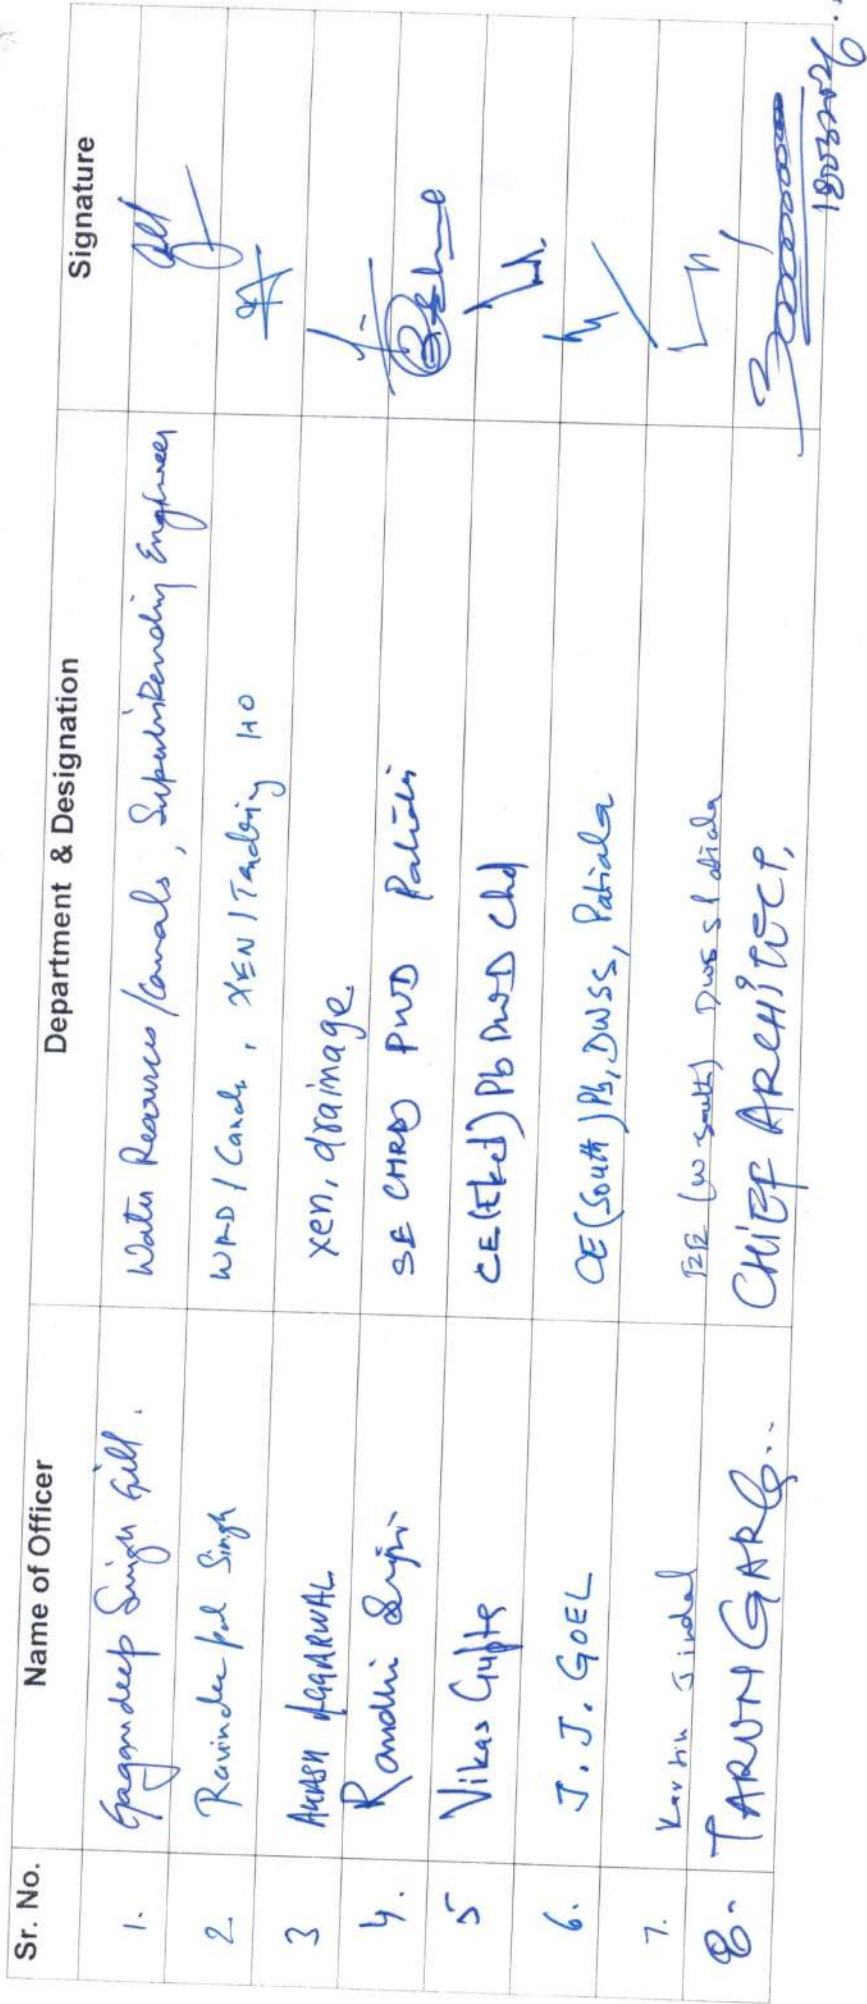 Sr. No. Name of Officer Department & Designation Signature
1. Gagandeep Singh Gill. Water Resources/Canals, Superintending Engineer
2. Ravinder pal Singh WRD/Canals, XEN/Tendring HO
3 AKASH AGGARWAL xen, drainage.
4. SE PWD Patiala
5 Vikas Gupta CE(Elect) Pb PWD Chd
6. J. J. GOEL CE(South)Pb, DWSS, Patiala
7. Kartik Jindal DWSS Patiala
8. TARUN GARG.. CHIEF ARCHITECT,